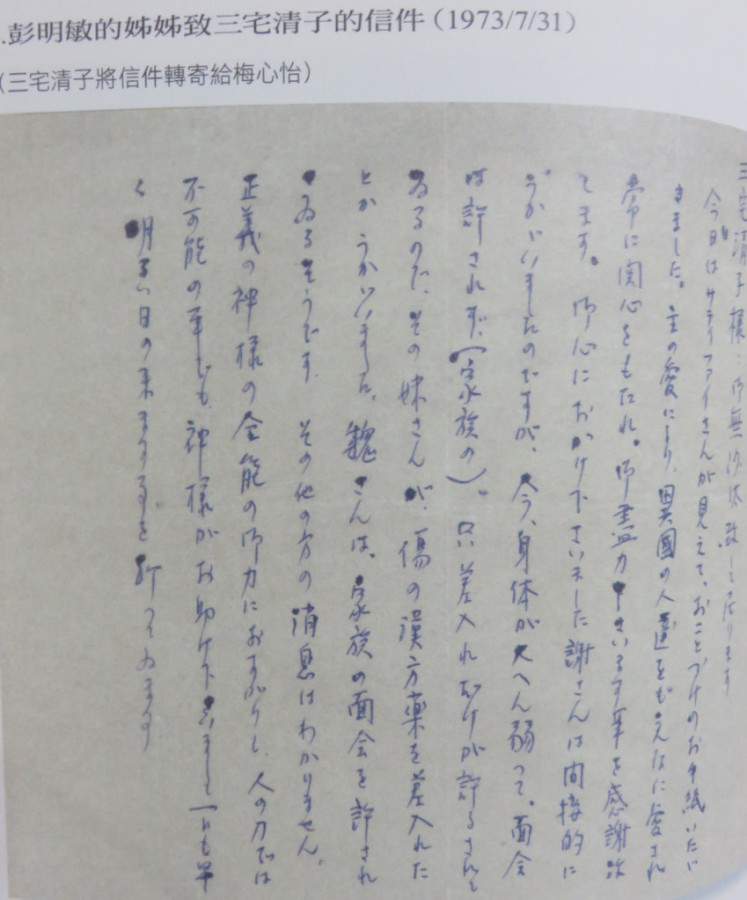 .彭明敏的姊姊致三宅清子的信件（1973/7/31）
（三宅清子將信件轉寄給梅心怡）
三宅清子様：御無沙汰致して居ります
今日はサティファイさんが見えて、おことづけのお手紙いただ
きました。主の愛により、異國の人達をもこんなに愛され
常に関心をもたれ。御盡力下さいます事を感謝致
してます。御心におかけ下さいました謝さんは間接的に
うかがいましたのですが、今、身体が大へん弱って。面会
は許されず、（家族の）。只差入れだけが許るされて
ゐるのだ、その妹さんが、傷の漢方薬を差入れた
とかうかがいました。魏さんは、家族の面会を許され
てゐるそうです。その他の方の消息はわかりません。
正義の神様の全能の御力におすがりし、人の力では
不可能の事でも、神様がお助け下さいまして一日も早
く明るい日の来ますのを祈ってゐます